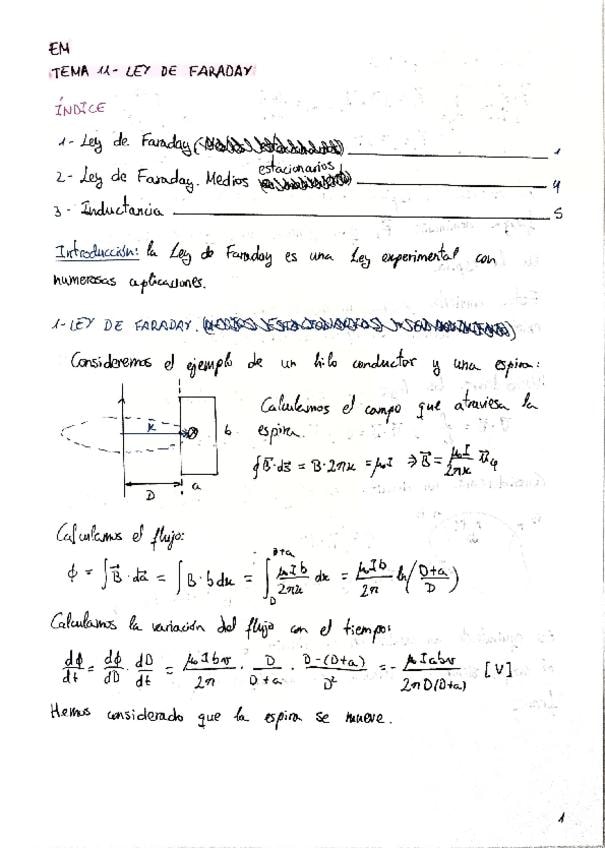 EM
TEMA 11- LEY DE FARADAY
ÍNDICE
1- Ley de Faraday ( ) 1
2- Ley de Faraday. Medios estacionarios 4
3- Inductancia 5
Introducción: la Ley de Faraday es una Ley experimental con
numerosas aplicaciones.
1- LEY DE FARADAY. ( )
Consideremos el ejemplo de un hilo conductor y una espira:
Calculamos el campo que atraviesa la
espira.
x b
D a
∮B⃗·ds⃗ = B·2πx = μ₀I ⇒ B⃗ = μ₀I/2πx u⃗φ
Calculamos el flujo:
ϕ = ∫B⃗·da⃗ = ∫B·bdx = ∫_D^{D+a} μ₀Ib/2πx dx = μ₀Ib/2π ln(D+a/D)
Calculamos la variación del flujo con el tiempo:
dϕ/dt = dϕ/dD · dD/dt = μ₀Ibv/2π · D/D+a · D-(D+a)/D² = - μ₀Iabv/2πD(D+a) [V]
Hemos considerado que la espira se mueve.
1